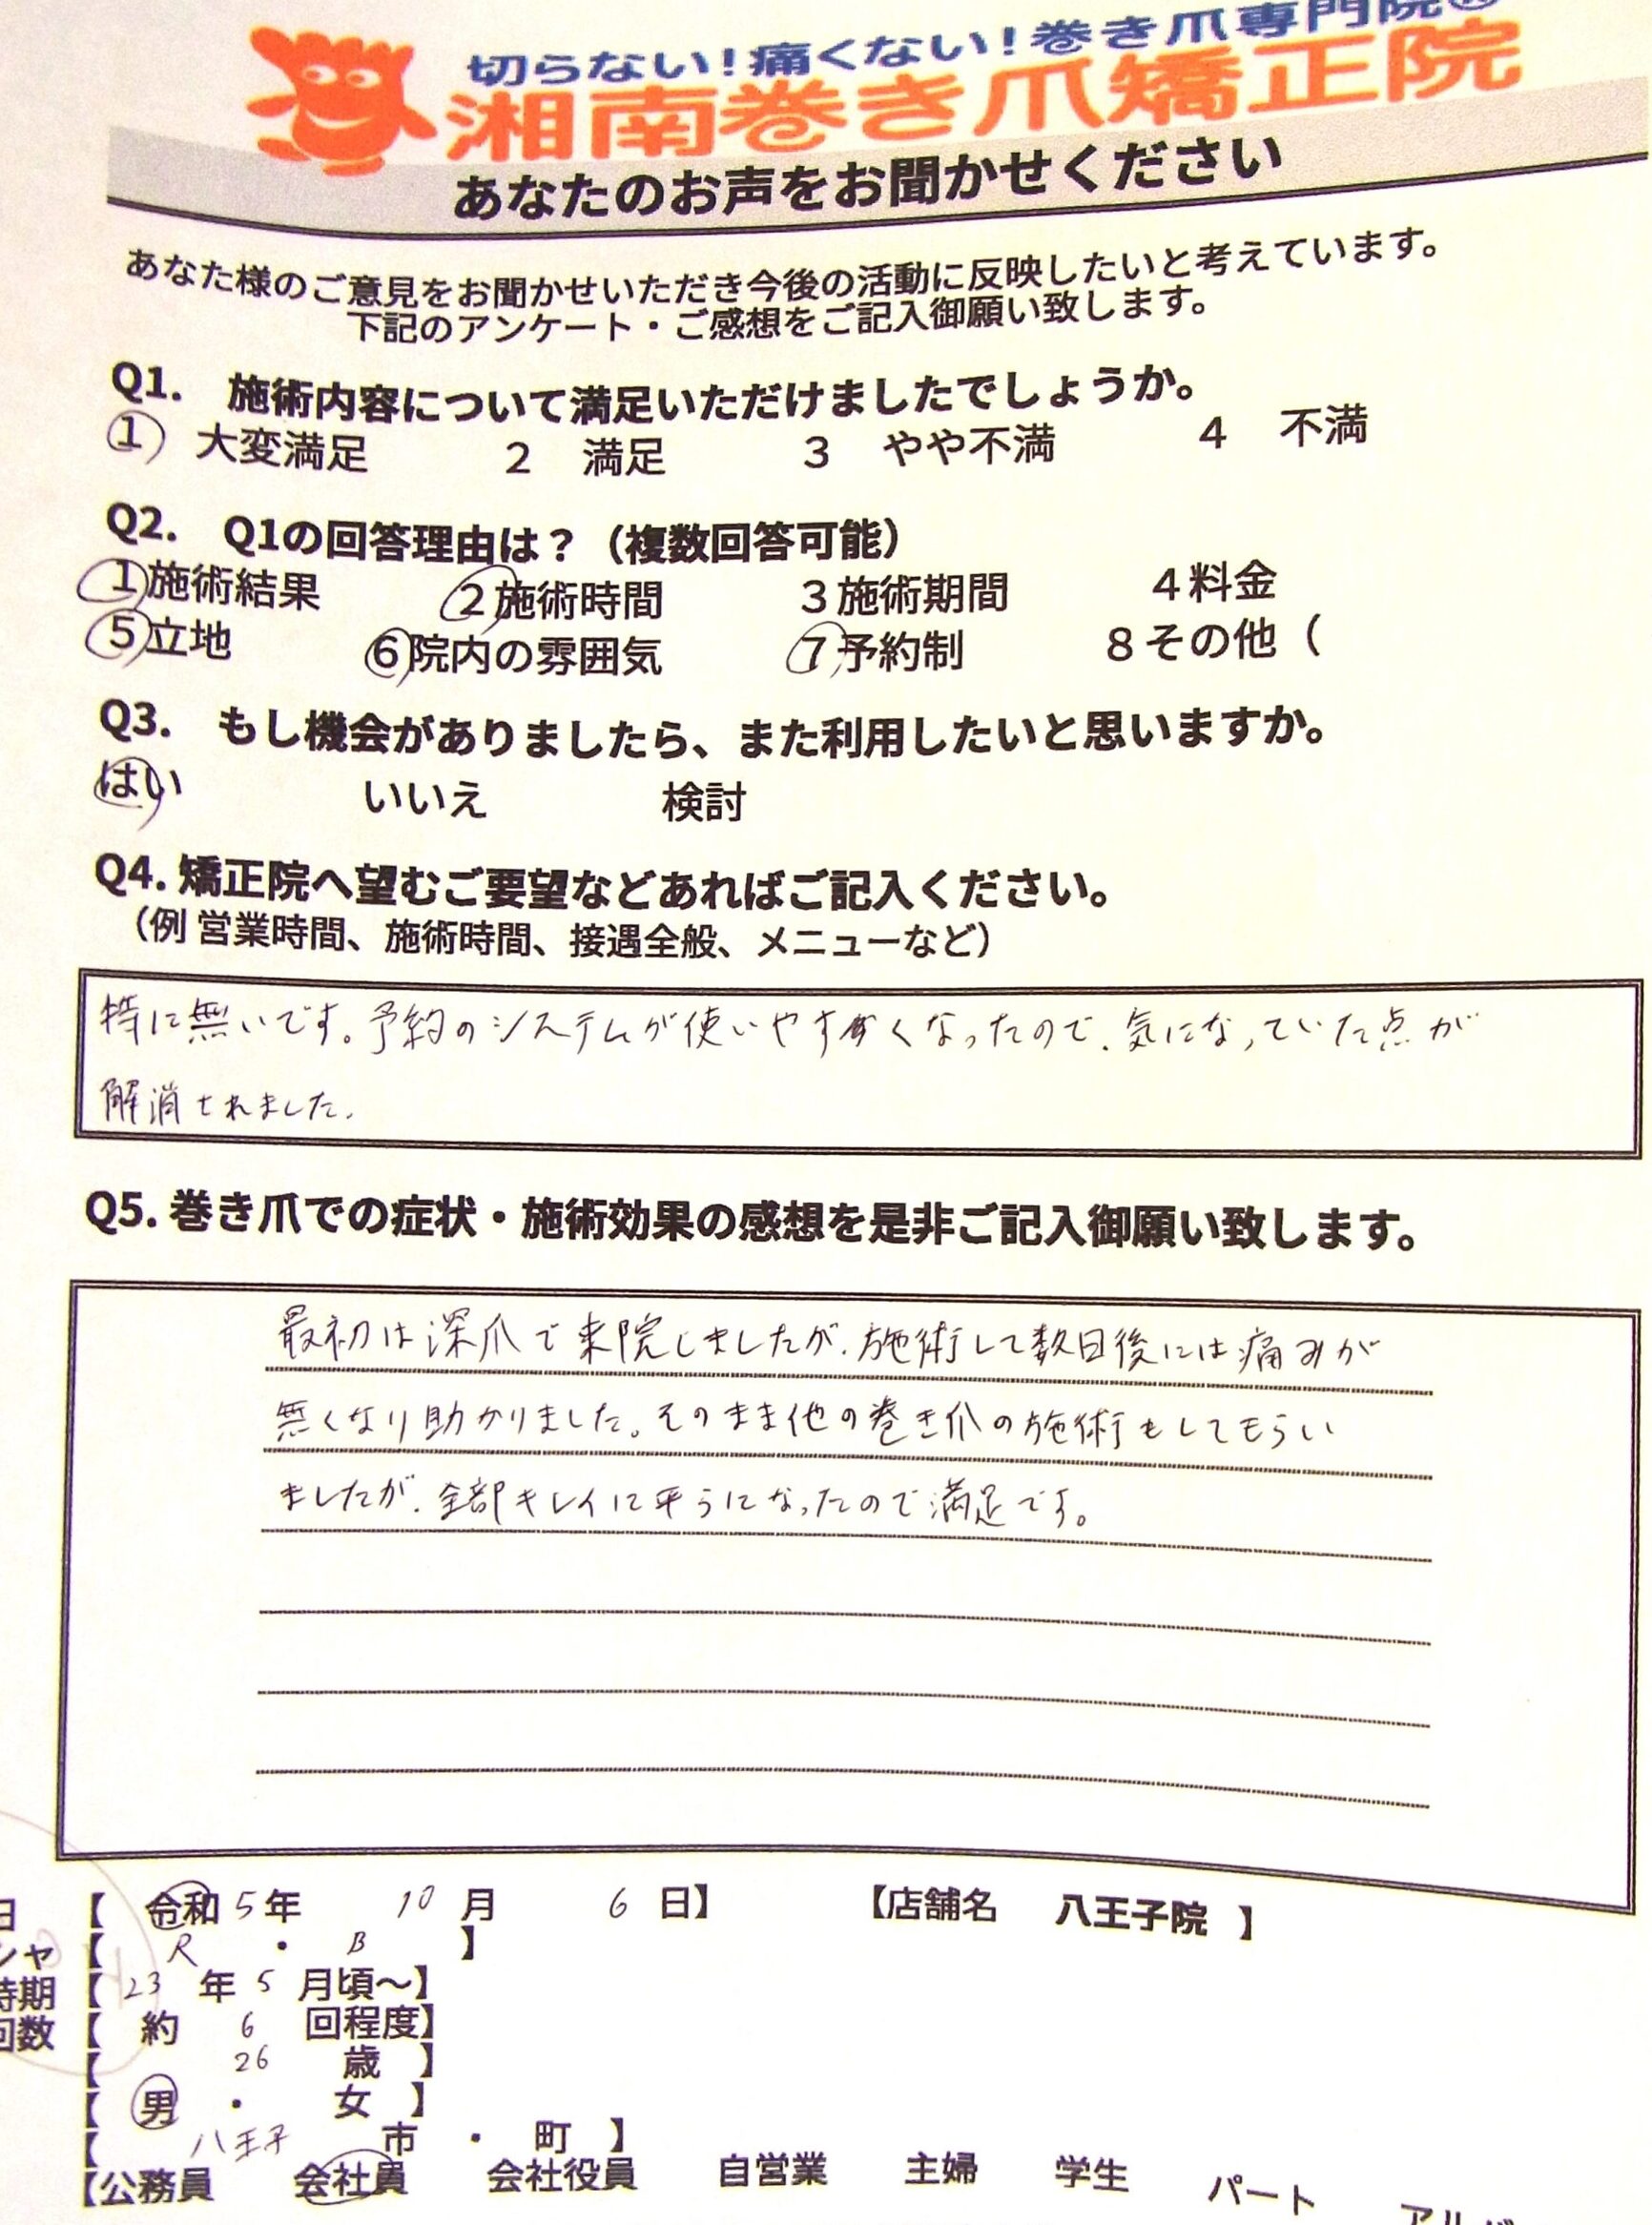 切らない!痛くない!巻き爪専門院
湘南巻き爪矯正院
あなたのお声をお聞かせください
あなた様のご意見をお聞かせいただき今後の活動に反映したいと考えています。
下記のアンケート・ご感想をご記入御願い致します。
Q1. 施術内容について満足いただけましたでしょうか。
1 大変満足 2 満足 3 やや不満 4 不満
Q2. Q1の回答理由は?(複数回答可能)
1施術結果 2施術時間 3施術期間 4料金
5立地 6院内の雰囲気 7予約制 8その他(
Q3. もし機会がありましたら、また利用したいと思いますか。
はい いいえ 検討
Q4. 矯正院へ望むご要望などあればご記入ください。
(例 営業時間、施術時間、接遇全般、メニューなど)
特に無いです。予約のシステムが使いやすくなったので、気になっていた点が
解消されました。
Q5. 巻き爪での症状・施術効果の感想を是非ご記入御願い致します。
最初は深爪で来院しましたが、施術して数日後には痛みが
無くなり助かりました。そのまま他の巻き爪の施術もしてもらい
ましたが、全部キレイに平らになったので満足です。
日【 令和 5年 10月 6日】 【店舗名 八王子院 】
シャ【 R ・ B 】
時期【 23 年 5 月頃〜】
回数【 約 6 回程度】
【 26 歳 】
【 男 ・ 女 】
【 八王子 市 ・ 町 】
【公務員 会社員 会社役員 自営業 主婦 学生 パート